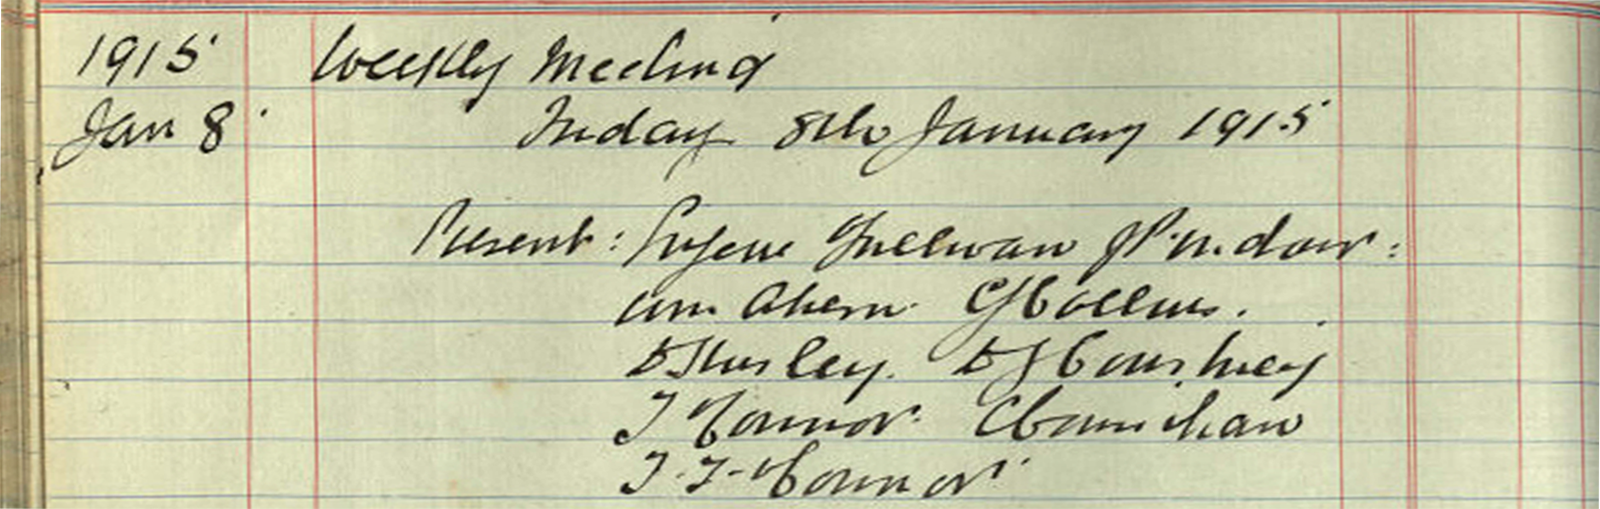 1915 Weekly Meeting
Jan 8 Friday 8th January 1915
Present: Eugene Sullivan JP. in chair:
Wm Ahern C J Collins.
D Hurley. D J Courtney
J O'Connor. C Counihan
T. T. O'Connor